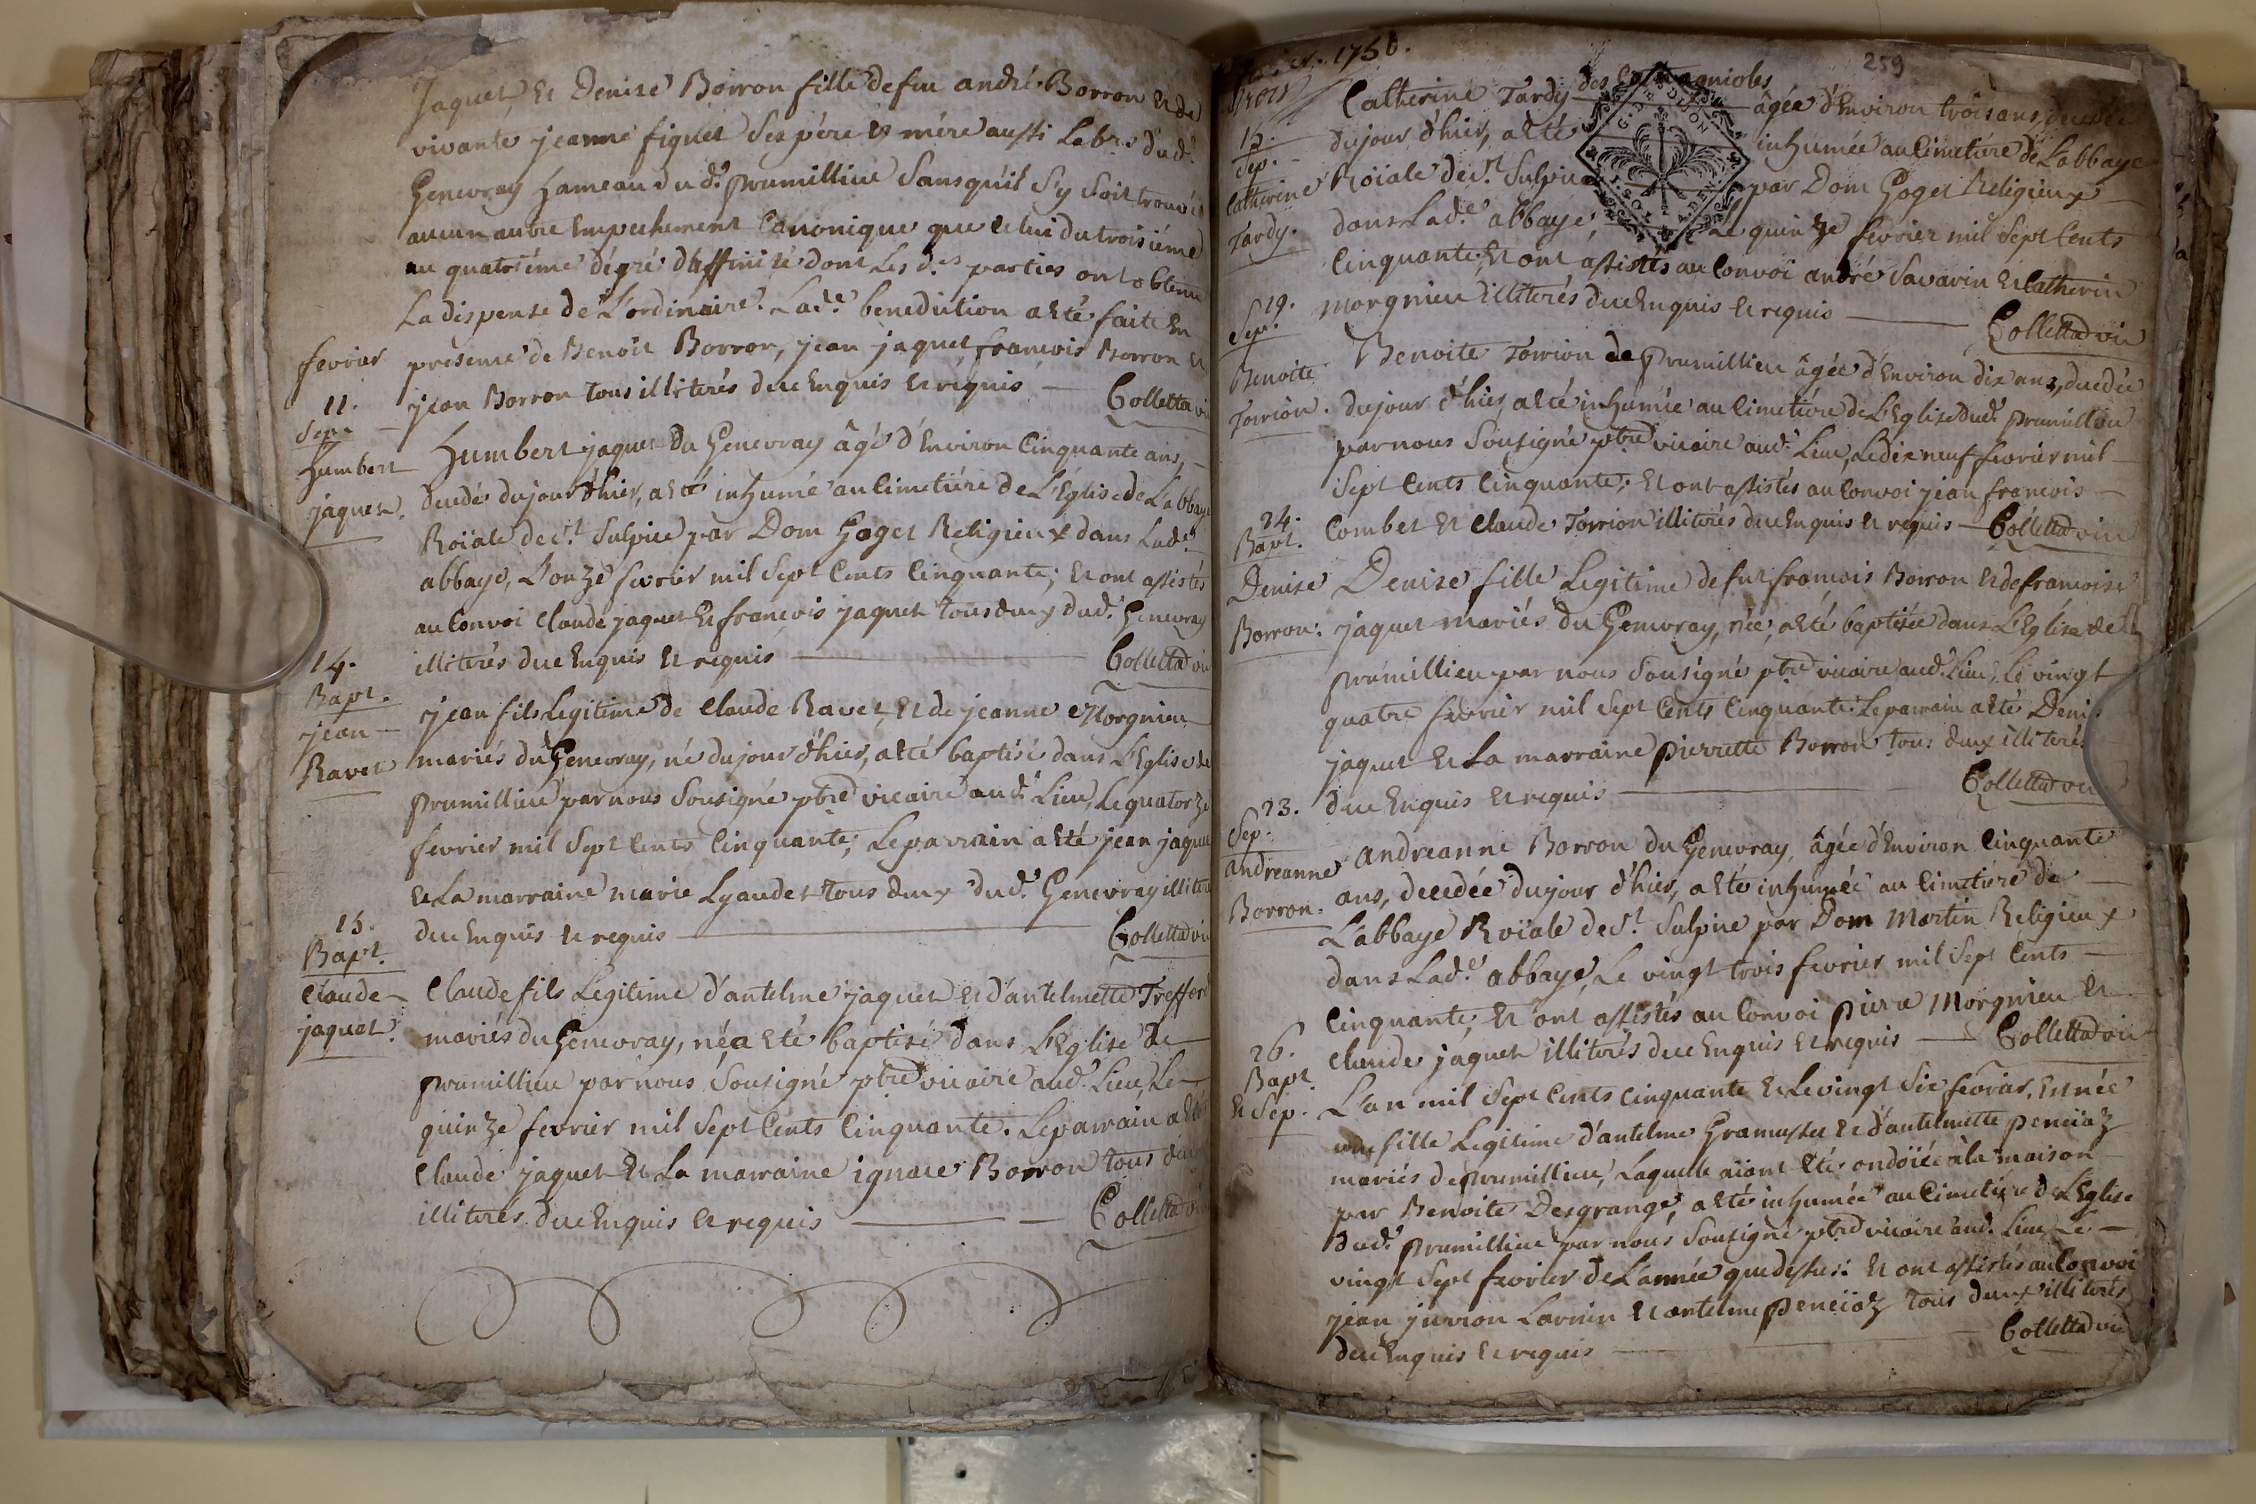 Jaquet, et Denise Borron fille de feu andré Borron et de
vivante jeanne figuet Ses père et mère aussi Labrs dud.
Genevray hameau dud. prumillieu Sans qu'il S'y Soit trouvé
aucun autre Empechement Canonique que celui du troisiéme
au quatriéme dégré d'affinité dont Les d.es parties ont obtenu
La dispense de L'ordinaire. Lad.e benediction a Eté faite En
présence de Benoit Borron, jean jaquet, francois Borron et
jean Borron tous illiterés de ce Enquis et requis Colletta vic
fevrier
11.
Sep.
humbert
jaquet.
humbert jaquet du Genevray âgé d'Environ Cinquante ans,
decedé du jour d'hier, a Eté inhumé au Cimetière de L'Eglise de L'abbaye
Roïale de S.t Sulpice par Dom Goget Religieux dans Lad.e
abbaye, L'onze fevrier mil Sept Cents Cinquante; Et ont assistés
au Convoi Claude jaquet Et françois jaquet tous deux dud. Genevray
illiterés de ce Enquis et requis Colletta vic
14.
Bapt.
jean
Ravet
jean fils Legitime de Claude Ravet, et de jeanne Morgnieu
mariés du Genevray, né du jour d'hier, a Eté baptisé dans L'Eglise de
prumillieu par nous Sousigné ptre vicaire aud. Lieu, Le quatorze
fevrier mil Sept Cents Cinquante; Le parrain a Eté jean jaquet
et La marraine marie Lyaudet tous deux dud. Genevray illiterés
de ce Enquis et requis Colletta vic
15.
Bapt.
Claude
jaquet.
Claude fils Legitime d'antelme jaquet et d'antelmette Treffort
mariés du Genevray, né, a Eté baptisé dans L'Eglise de
prumillieu par nous Sousigné ptre vicaire aud. Lieu, Le
quinze fevrier mil Sept Cents Cinquante. Le parrain a Eté
Claude jaquet et La marraine ignace Borron tous deux
illiterés de ce Enquis et requis Colletta vic
1750.
259
15.
Sep.
Catherine
Tardy.
Catherine Tardy des âgée d'Environ trois ans, decedée
du jour d'hier, a Eté inhumée au Cimetière de L'abbaye
Roïale de S.t Sulpice par Dom Goget Religieux
dans Lad.e abbaye, Le quinze fevrier mil Sept Cents
Cinquante, Et ont assistés au Convoi andré Savarin et Catherin
morgnieu illiterés de ce Enquis et requis Colletta vic
19.
Sep.
Benoite
Torrion.
Benoite Torrion de prumillieu âgée d'Environ dix ans, decedée
du jour d'hier, a Eté inhumée au Cimetière de L'Eglise dud. prumillieu
par nous Sousigné ptre vicaire aud. Lieu, Le dix neuf fevrier mil
Sept Cents Cinquante; Et ont assistés au Convoi jean francois
Combet et Claude Torrion illiterés de ce Enquis et requis Colletta vic
24.
Bapt.
Denise
Borron.
Denise fille Legitime de fut francois Borron et de francoise
jaquet mariés du Genevray, née, a Eté baptisée dans L'Eglise de
prumillieu par nous Sousigné ptre vicaire aud. Lieu, Le vingt
quatre fevrier mil Sept Cents Cinquante. Le parrain a Eté Denis
jaquet et La marraine pierrette Borron tous deux illiterés
de ce Enquis et requis Colletta vic
23.
Sep.
andreanne
Borron.
andreanne Borron du Genevray, âgée d'Environ Cinquante
ans, decedée du jour d'hier, a Eté inhumée au Cimetière de
L'abbaye Roïale de S.t Sulpice par Dom Martin Religieux
dans Lad.e abbaye, Le vingt trois fevrier mil Sept Cents
Cinquante; Et ont assistés au Convoi pierre Morgnieu et
Claude jaquet illiterés de ce Enquis et requis Colletta vic
26.
Bapt.
et Sep.
L'an mil Sept Cents Cinquante et Le vingt Six fevrier, Est née
une fille Legitime d'antelme Gramusset et d'antelmette peneïaz
mariés de prumillieu, Laquelle aïant Eté ondoïée à la maison
par Benoite Desgrange, a Eté inhumée au Cimetière de L'Eglise
Dud. prumillieu par nous Sousigné ptre vicaire aud. Lieu, Le
vingt Sept fevrier de L'année que dessus: et ont assistés au Convoi
jean juvron et antelme peneïaz tous deux illiterés
de ce Enquis et requis Colletta vic